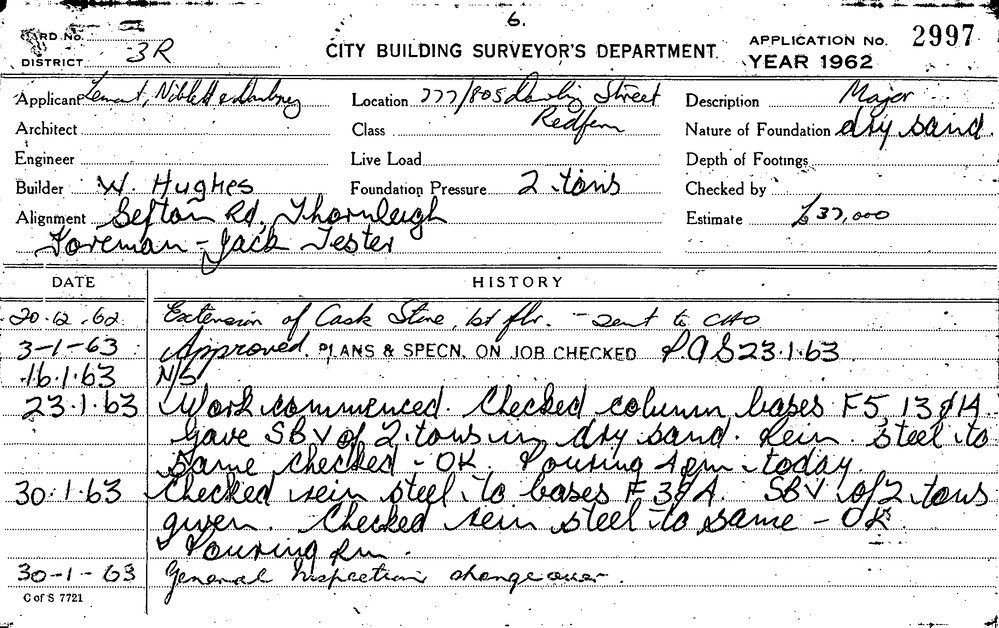 6.
CARD No.
DISTRICT 3R
CITY BUILDING SURVEYOR'S DEPARTMENT.
APPLICATION No. 2997
YEAR 1962
Applicant Niblett &
Location 777/805 Street
Redfern
Description Major
Architect
Class
Nature of Foundation dry sand
Engineer
Live Load
Depth of Footings
Builder W. Hughes
Foundation Pressure 2 tons
Checked by
Alignment Sefton Rd, Thornleigh
Estimate £37,000
Foreman - Jack Tester
DATE
HISTORY
20.12.62 Extension of Cask Store, 1st flr. - Sent to CHO
3-1-63 Approved. PLANS & SPECN. ON JOB CHECKED 23.1.63
16.1.63 N/S
23.1.63 Work commenced. Checked column bases F5, 13 & 14.
Gave SBV of 2 tons in dry sand. Rein. steel to
same checked - OK. Pouring 4pm today.
30.1.63 Checked rein steel to bases F 3 & 4. SBV of 2 tons
given. Checked rein steel to same - OK.
Pouring
30-1-63 General Inspection change over.
C of S 7721